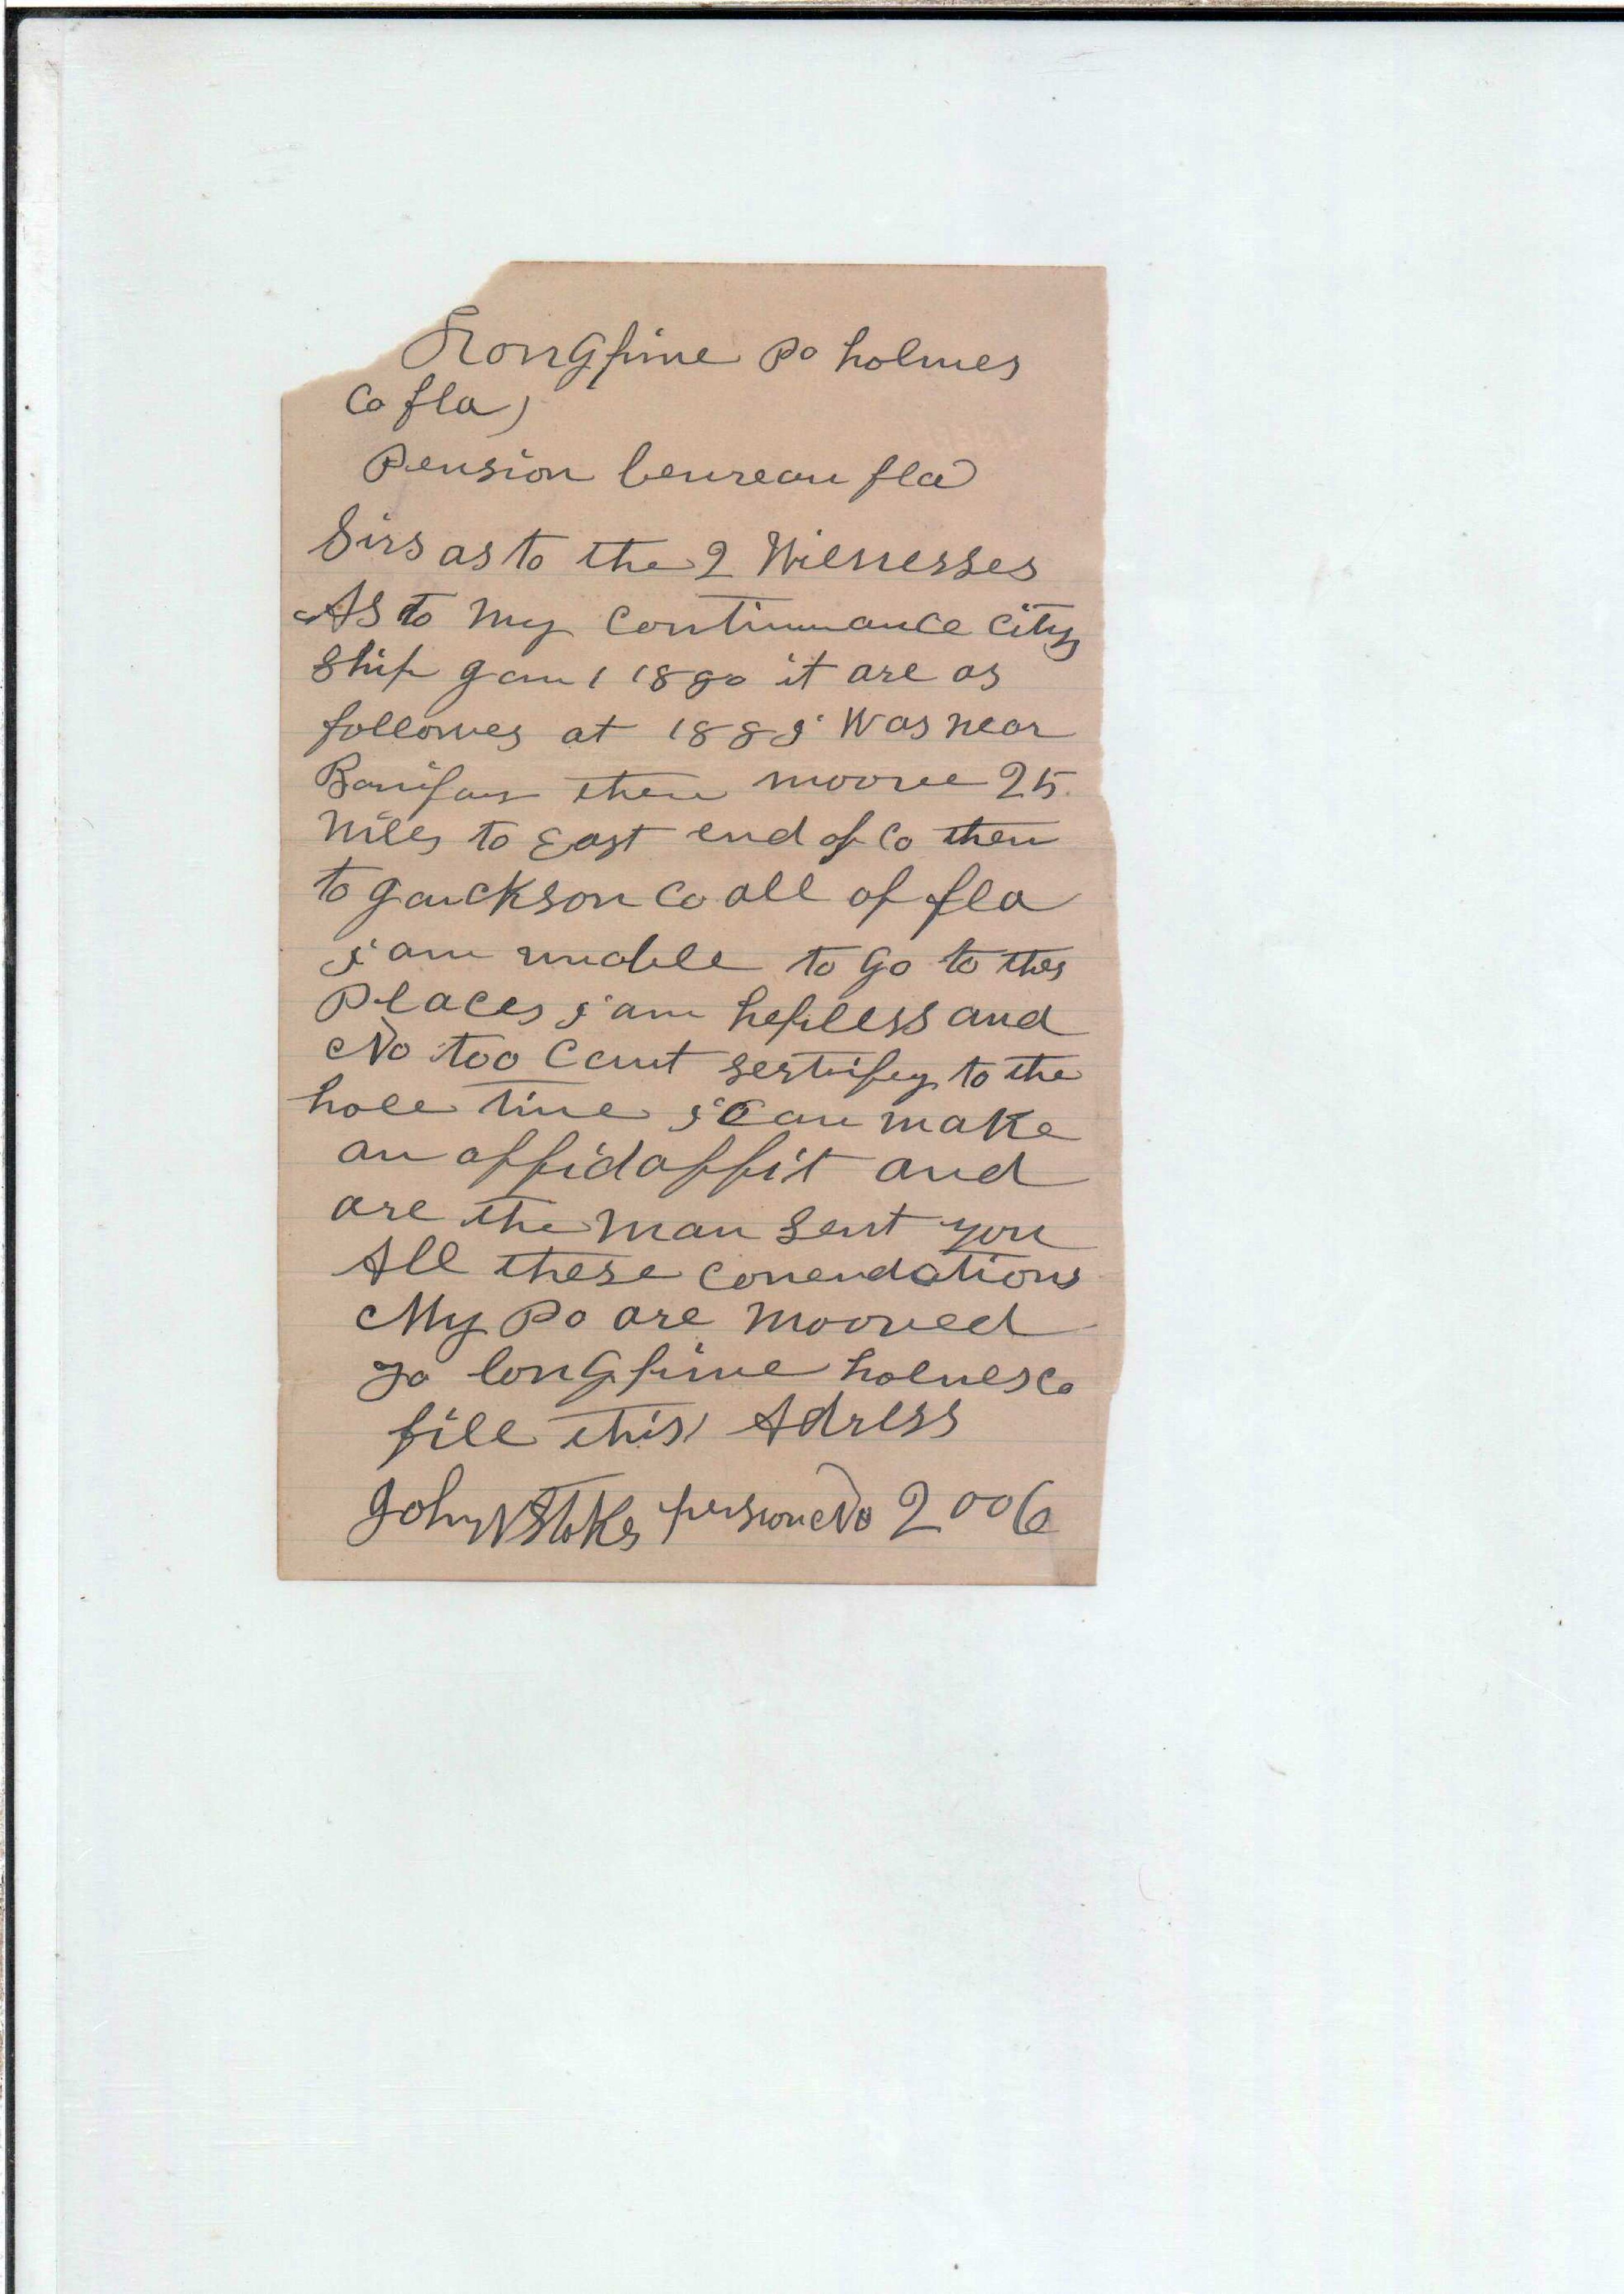 Longpine Po holmes
Co fla)
Pension beureau fla
Sirs as to the 2 Witnesses
As to My Continuance City
Ship Jan 1 1880 it are as
followes at 1889 Was near
Bonifay then moove 25
Miles to East end of Co then
to Jackson Co all of fla
i am unable to Go to thes
Places i am helpless and
No too Cant sertifey to the
hole time i Can make
an affidaffit and
are the Man Sent you
All these
My Po are Mooved
To longpine holmes Co
file this Adress
John N Stokes pension No 2006